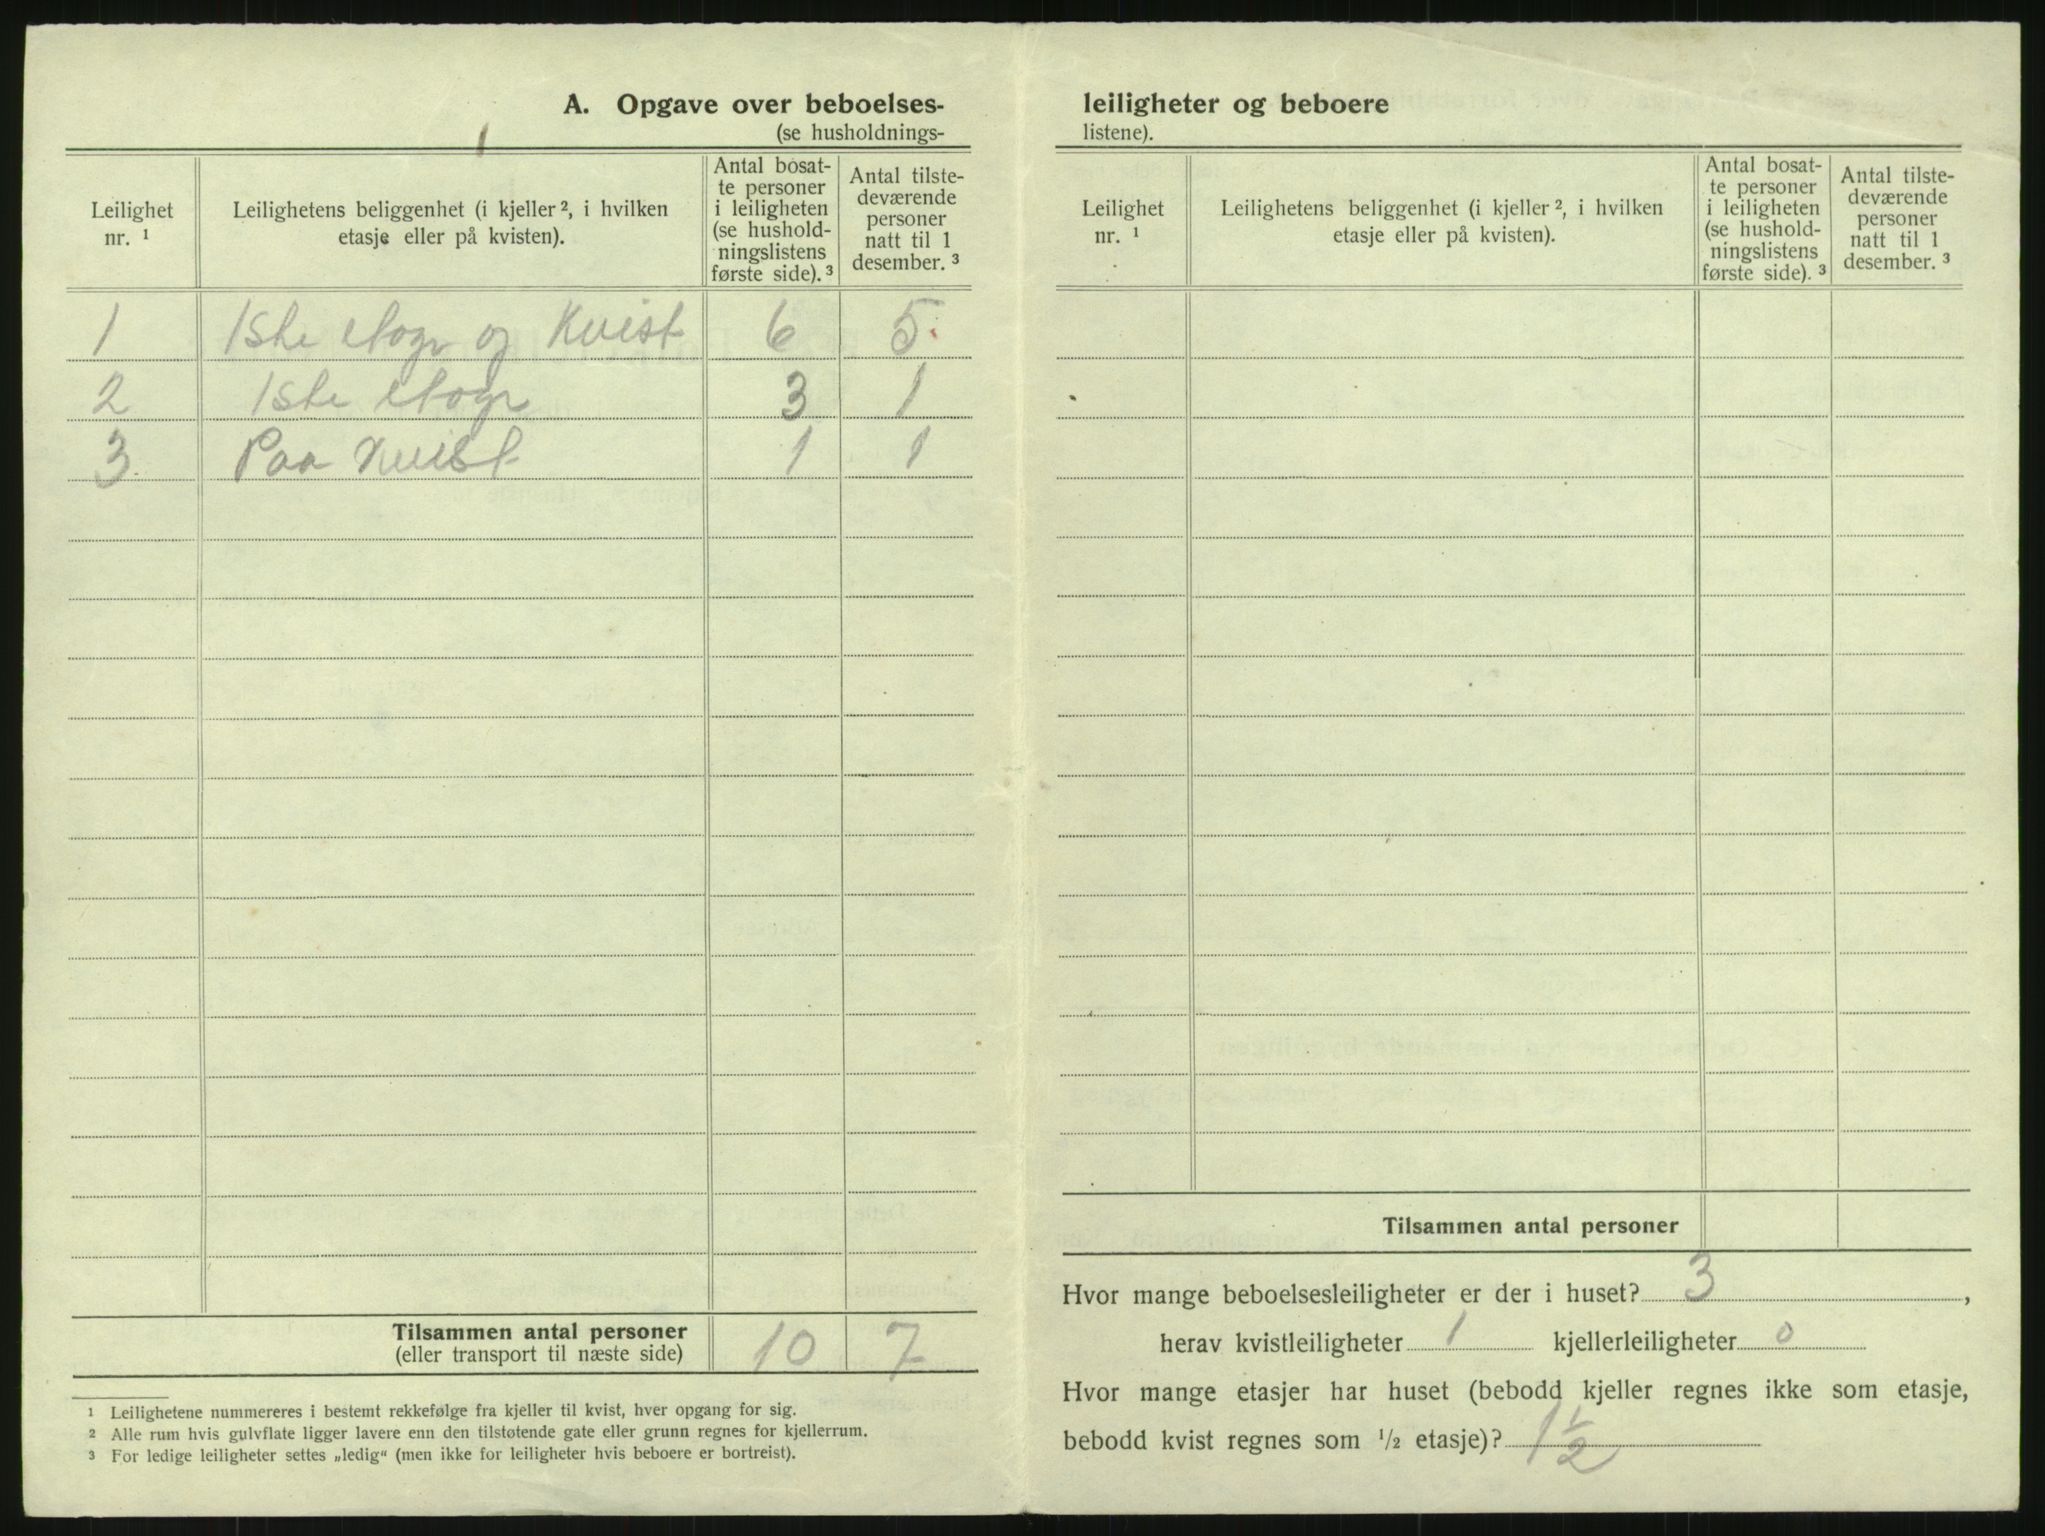 A. Opgave over beboelses- leiligheter og beboere
(se husholdnings- listene).
Leilighet nr. 1
Leilighetens beliggenhet (i kjeller 2, i hvilken etasje eller på kvisten).
Antal bosatte personer i leiligheten (se husholdningslistens første side). 3
Antal tilstedeværende personer natt til 1 desember. 3
Leilighet nr. 1
Leilighetens beliggenhet (i kjeller 2, i hvilken etasje eller på kvisten).
Antal bosatte personer i leiligheten (se husholdningslistens første side). 3
Antal tilstedeværende personer natt til 1 desember. 3
1 1ste etage og Kvist 6 5
2 1ste etage 3 1
3 Paa Kvist 1 1
Tilsammen antal personer
(eller transport til næste side) 10 7
1 Leilighetene nummereres i bestemt rekkefølge fra kjeller til kvist, hver opgang for sig.
2 Alle rum hvis gulvflate ligger lavere enn den tilstøtende gate eller grunn regnes for kjellerrum.
3 For ledige leiligheter settes „ledig“ (men ikke for leiligheter hvis beboere er bortreist).
Tilsammen antal personer
Hvor mange beboelsesleiligheter er der i huset? 3,
herav kvistleiligheter 1 kjellerleiligheter 0
Hvor mange etasjer har huset (bebodd kjeller regnes ikke som etasje,
bebodd kvist regnes som 1/2 etasje)? 1 1/2